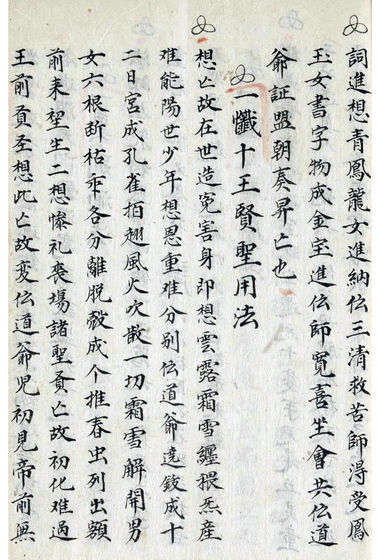 詞進想青鳳龍女進納伝三清救苦師得受鳳
玉女書字物成金室進伝師寛喜坐會共伝道
爺証盟朝奏昇亡也
一懺十王賢聖用法
想亡故在世造冤害身即想雲露霜雪纏猥炁産
难能陽世少年想恩重难分别伝道爺遶鈙成十
二日宮成孔雀拍翅風火吹散一切霜雪解開男
女六根断枯乖各分離脱殼成个推春虫列出額
前来堅生二想懆礼喪場諸聖貢亡故初化难過
王前貢圣想此亡故变伝道爺児初見帝前無